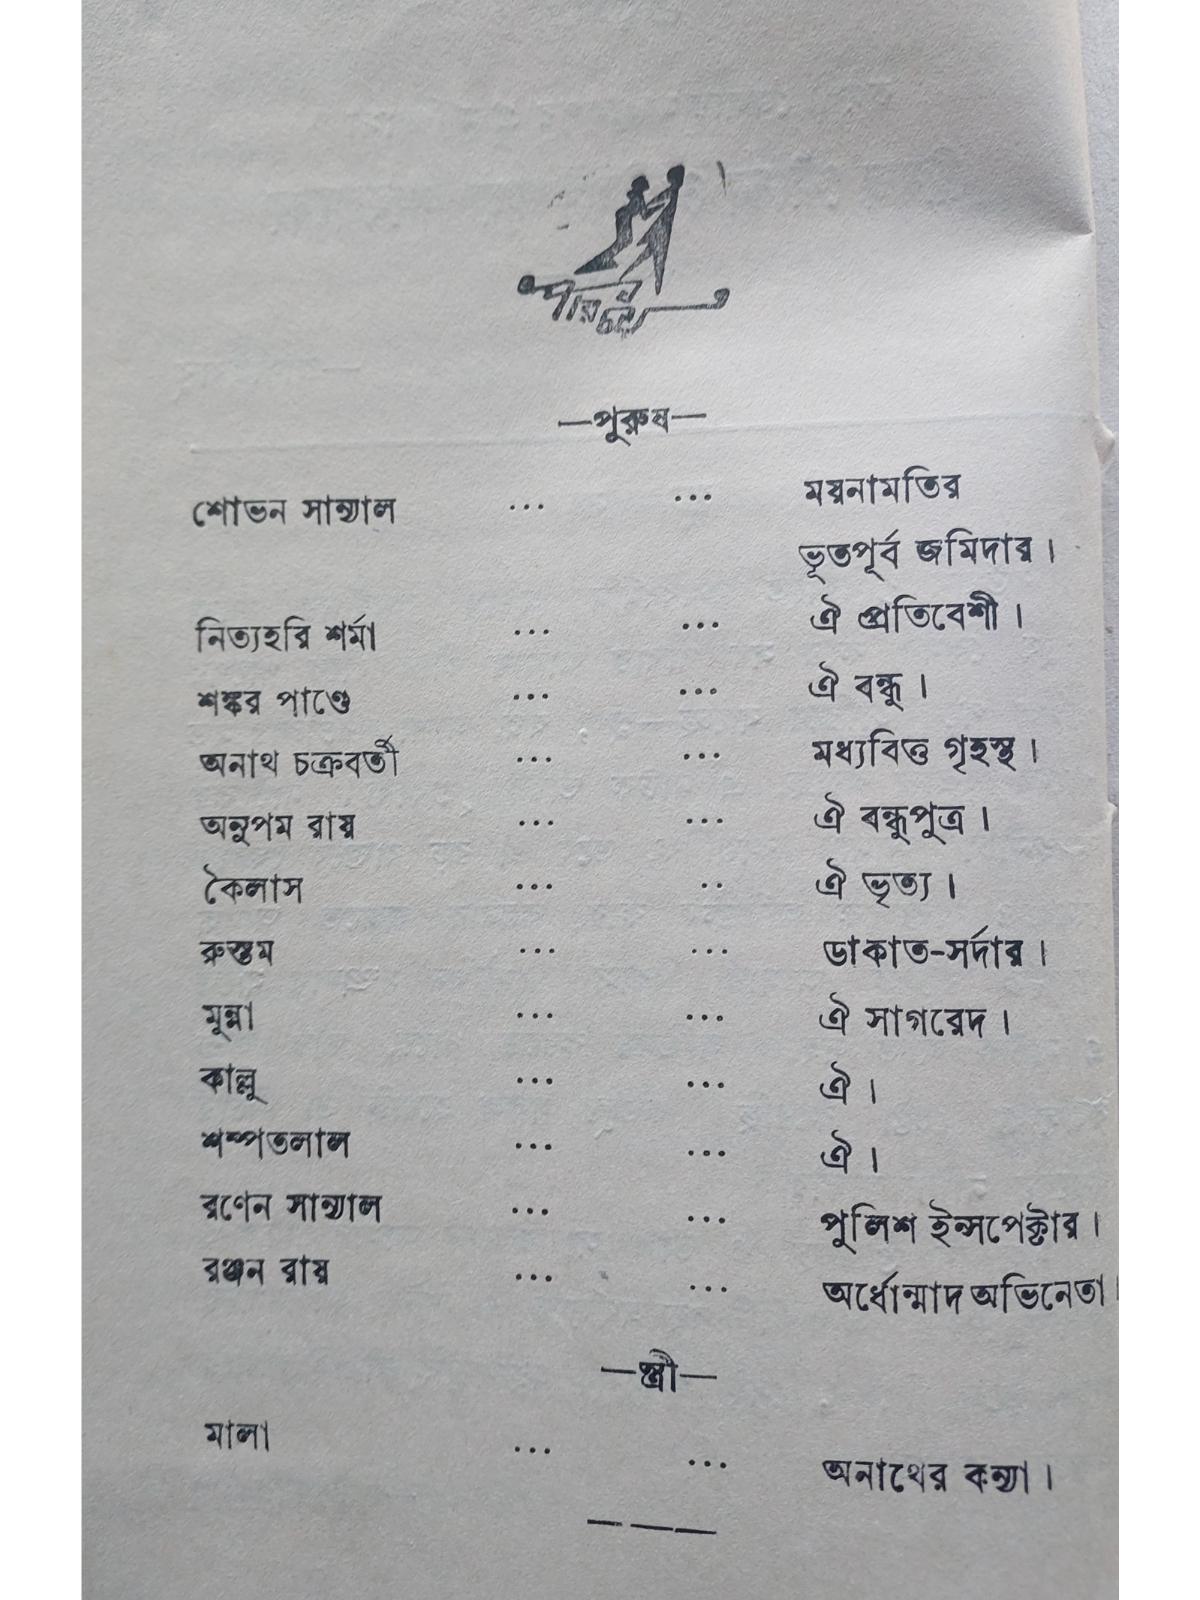 পরিচয়
—পুরুষ—
শোভন সান্যাল ... ... ময়নামতির
ভূতপূর্ব জমিদার।
নিত্যহরি শর্মা ... ... ঐ প্রতিবেশী।
শঙ্কর পাণ্ডে ... ... ঐ বন্ধু।
অনাথ চক্রবর্তী ... ... মধ্যবিত্ত গৃহস্থ।
অনুপম রায় ... ... ঐ বন্ধুপুত্র।
কৈলাস ... .. ঐ ভৃত্য।
রুস্তম ... ... ডাকাত-সর্দার।
মুন্না ... ... ঐ সাগরেদ।
কাল্লু ... ... ঐ।
শম্পতলাল ... ... ঐ।
রণেন সান্যাল ... ... পুলিশ ইন্সপেক্টার।
রঞ্জন রায় ... ... অর্ধোন্মাদ অভিনেতা।
—স্ত্রী—
মালা ... ... অনাথের কন্যা।